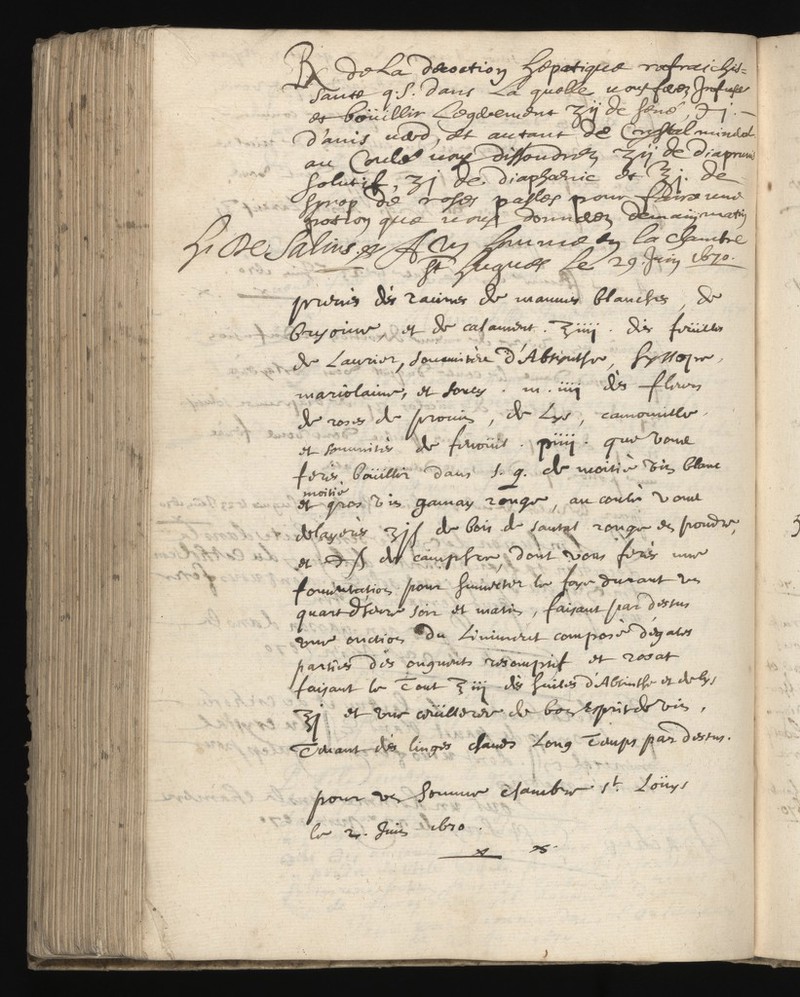 ℞ de la decoction hepatique rafraichis=
sante q.s. dans la quelle vous ferez Infuser
et boüillir Legerement ʒij de sené ℈j. –
d'anis verd, et autant de Cristal mineral
au Coulé vous dissoudrez ʒij de diaprun
solutif, ʒj de diaphenic et ℥j. de
syrop de roses pasles pour faire une
potion que vous donnerez demain matin
H. De Salins. A un homme en la chambre
St hugues le 29 Juin 1670.
prenés des racines de mauves blanches, de
bryoine et de calament . ℥iiij . des feüilles
de Laurier, sommités d'Absinthe, hyssope,
mariolaine, et . m. iiij des fleurs
de roses de provins, de Lys, camomille,
et sommités de . piiij . que vous
ferés boüillir dans s. q. de moitié vin blanc
et moitié gros vin gamay rouge, au coulé vous
delayerés ʒjſ de bois de santal rouge en poudre,
et ℈ſ de camphre, dont vous ferés une
fomentation pour humecter le foye durant un
quart d'heure soir et matin, faisant par dessus
une onction du Liniment composé d'égales
parties des onguents resomptif et rosat
faisant le Tout ℥iij des huiles d'Absinthe et de lys
℥j et une cuillerée de bon Esprit de vin,
Tenant des linges chauds Long Temps par dessus.
pour un homme chambre St. Loüys
le Juin 1670.